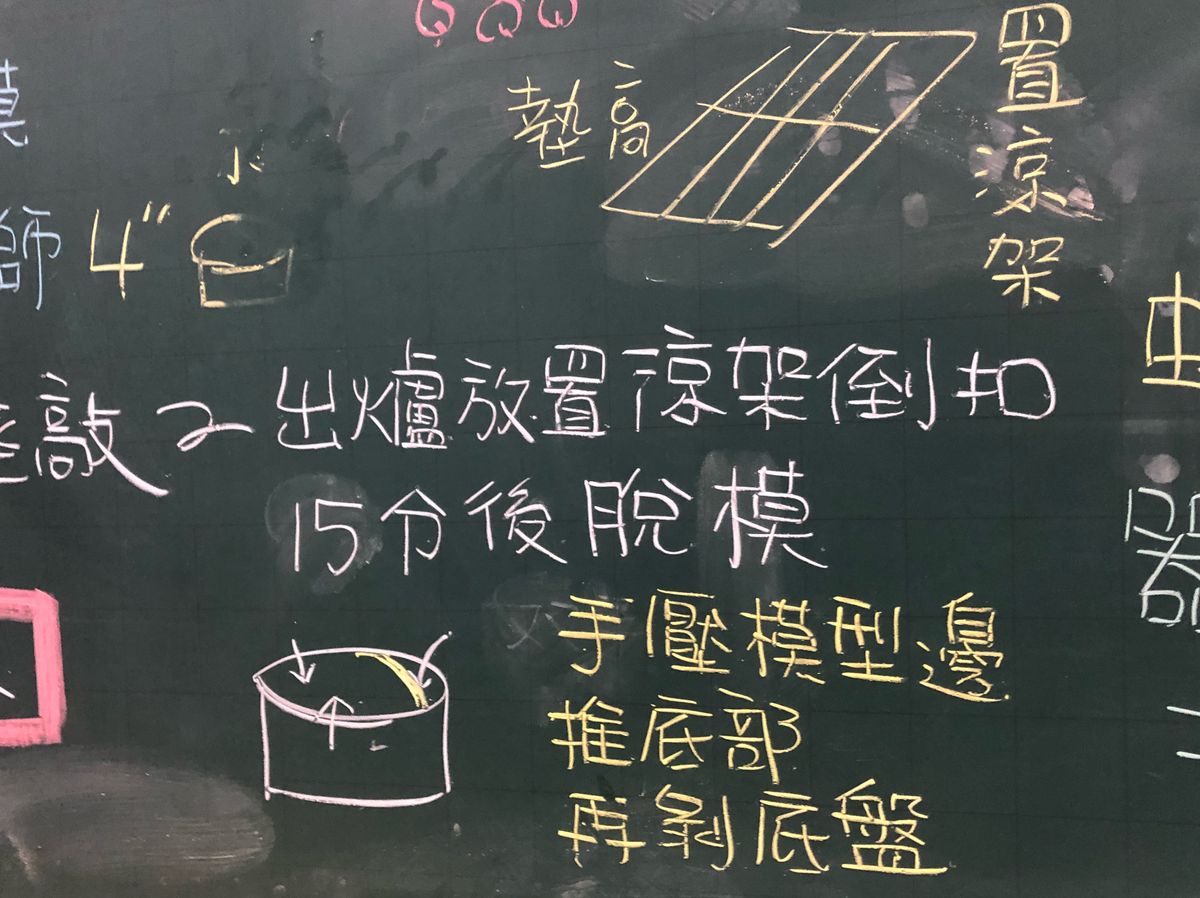 墊高
置涼架
師 4"
敲
出爐放置涼架倒扣
15分後脫模
手壓模型邊
推底部
再剝底盤